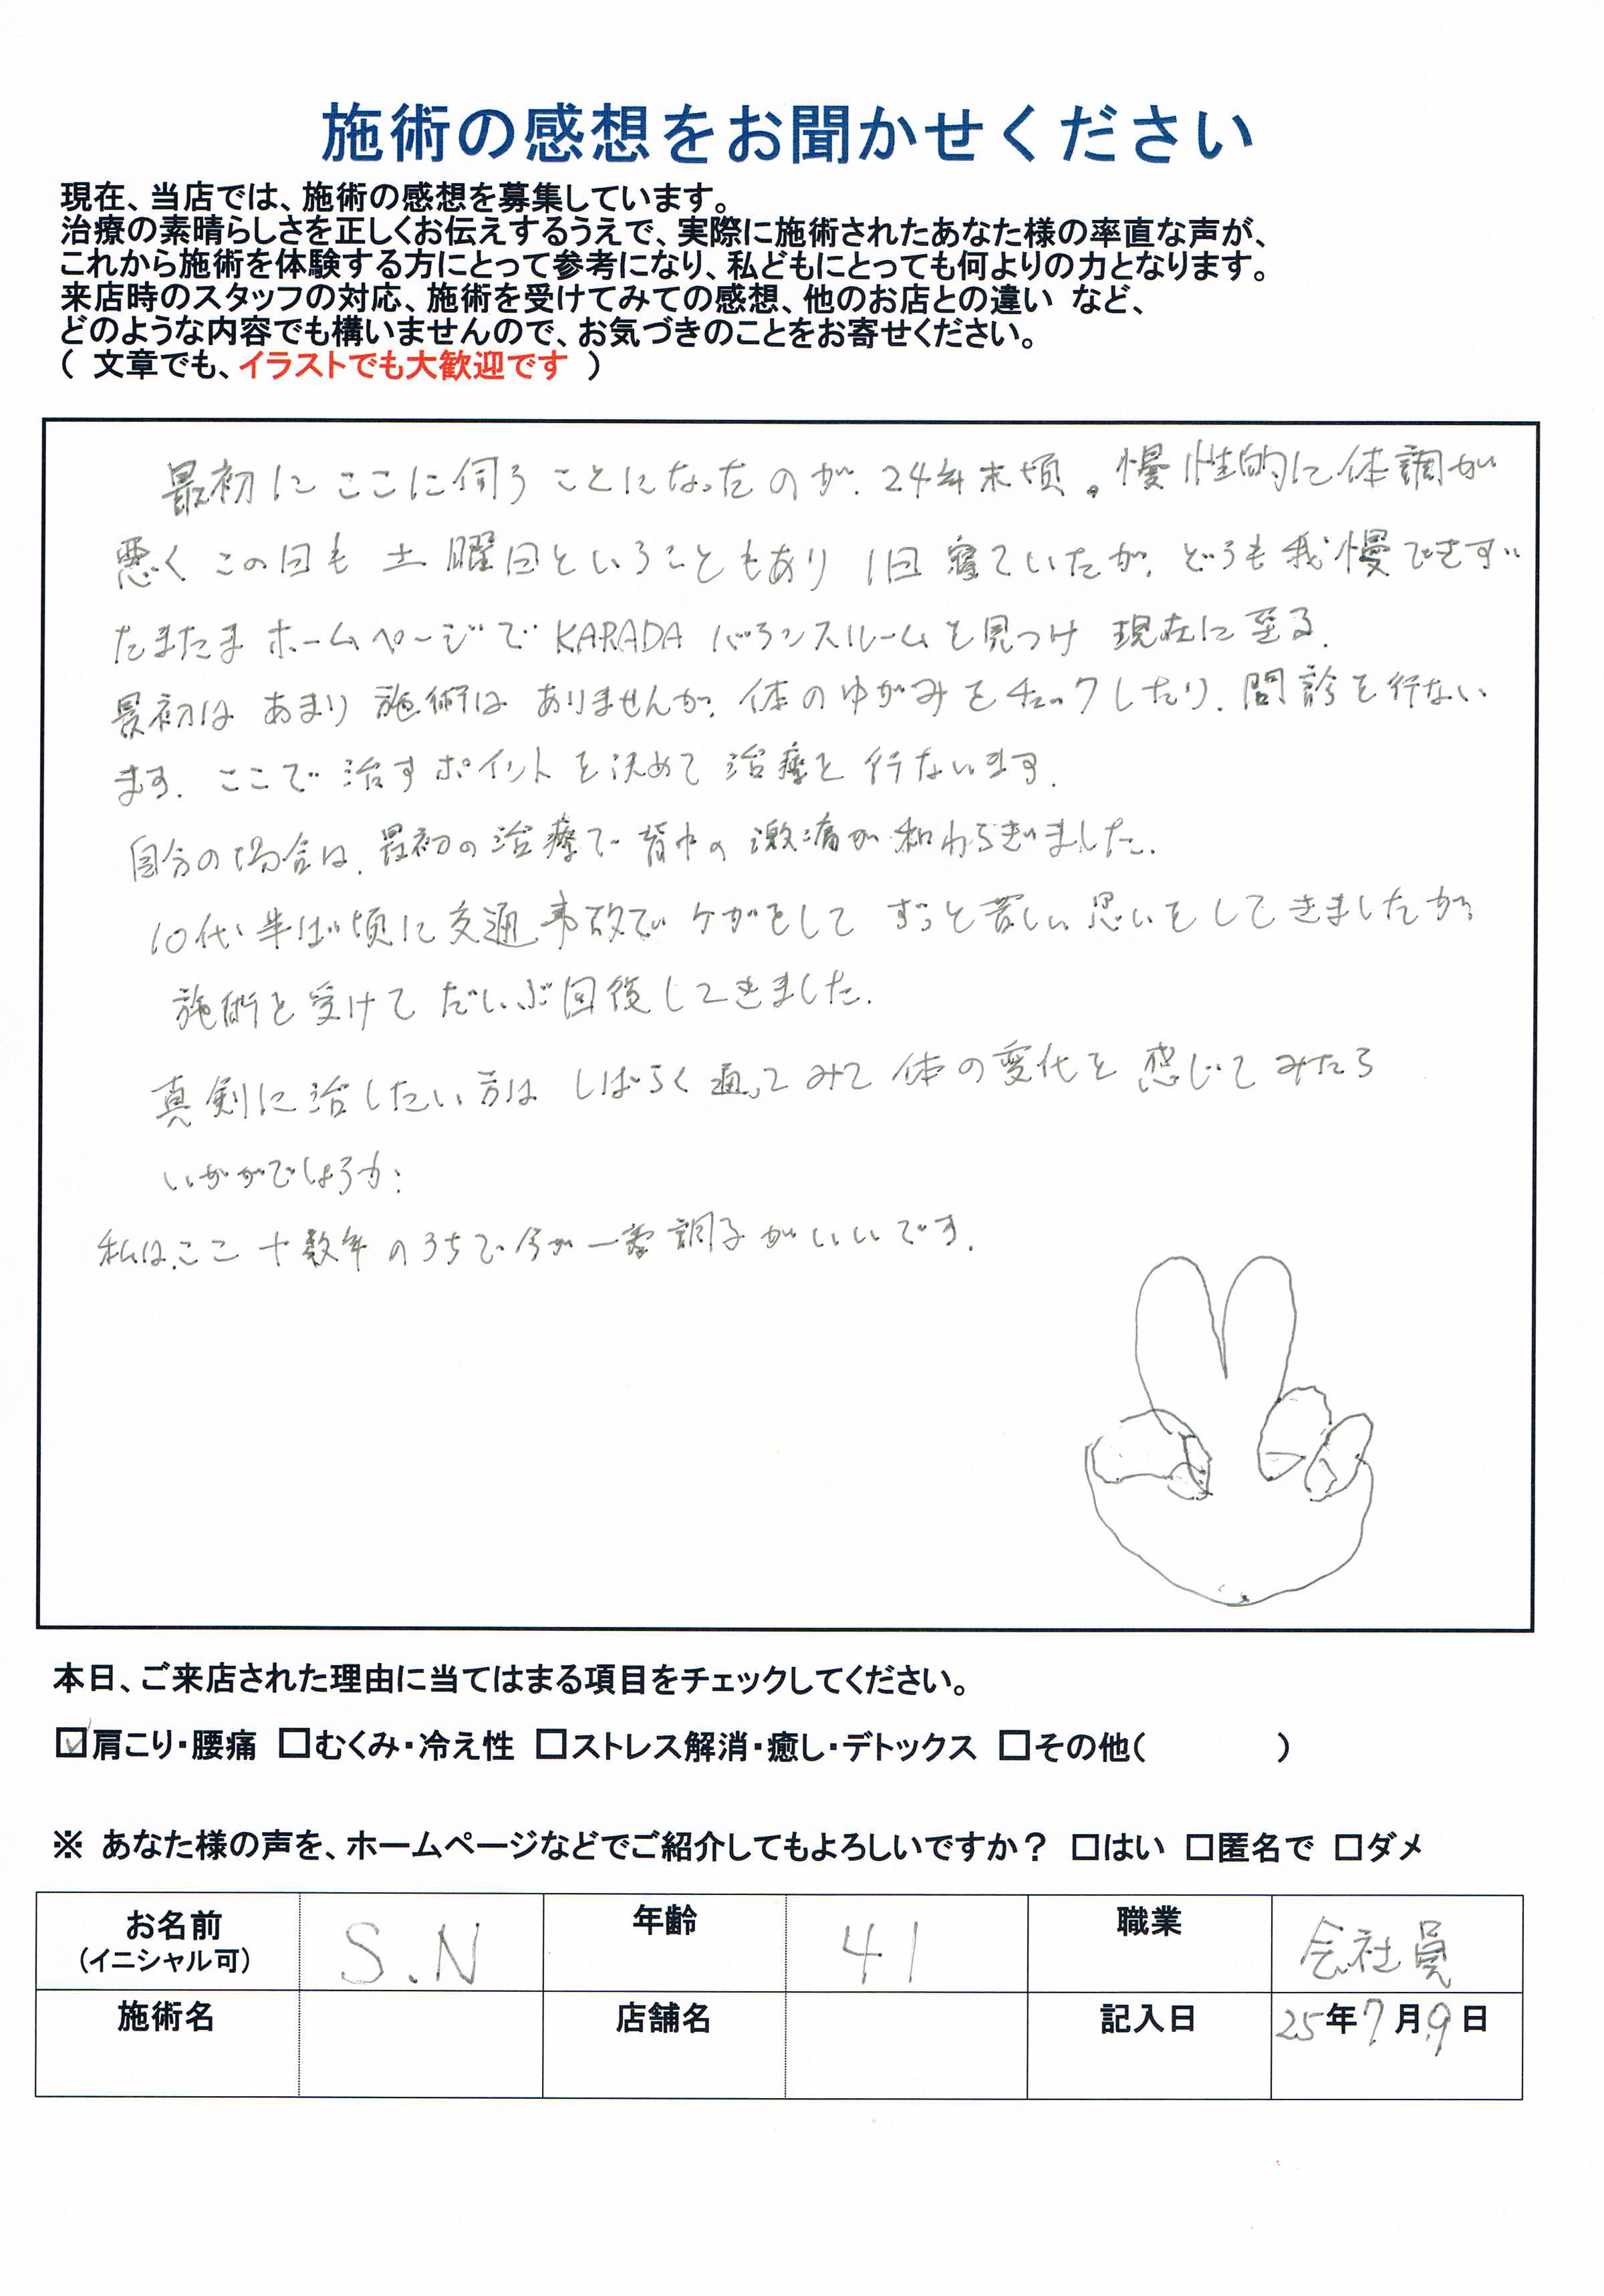 施術の感想をお聞かせください
現在、当店では、施術の感想を募集しています。
治療の素晴らしさを正しくお伝えするうえで、実際に施術されたあなた様の率直な声が、
これから施術を体験する方にとって参考になり、私どもにとっても何よりの力となります。
来店時のスタッフの対応、施術を受けてみての感想、他のお店との違い など、
どのような内容でも構いませんので、お気づきのことをお寄せください。
( 文章でも、イラストでも大歓迎です )
最初にここに伺うことになったのが、24年末頃。慢性的に体調が
悪くこの日も土曜日ということもあり1日寝ていたが、どうも我慢できず
たまたまホームページでKARADAバランスルームを見つけ 現在に至る.
最初はあまり施術はありませんが、体のゆがみをチェックしたり、問診を行ない
ます. ここで治すポイントを決めて治療を行ないます.
自分の場合は、最初の治療で背中の激痛が和わらぎました.
10代半ば頃に交通事故でケガをしてずっと苦しい思いをしてきましたが
施術を受けてだいぶ回復してきました.
真剣に治したい方はしばらく通ってみて体の変化を感じてみたら
いかがでしょうか.
私はここ十数年のうちで今が一番調子がいいです.
本日、ご来店された理由に当てはまる項目をチェックしてください。
☑肩こり・腰痛 □むくみ・冷え性 □ストレス解消・癒し・デトックス □その他( )
※ あなた様の声を、ホームページなどでご紹介してもよろしいですか? □はい □匿名で □ダメ
お名前 S.N 年齢 41 職業 会社員
(イニシャル可)
施術名 店舗名 記入日 25年7月9日